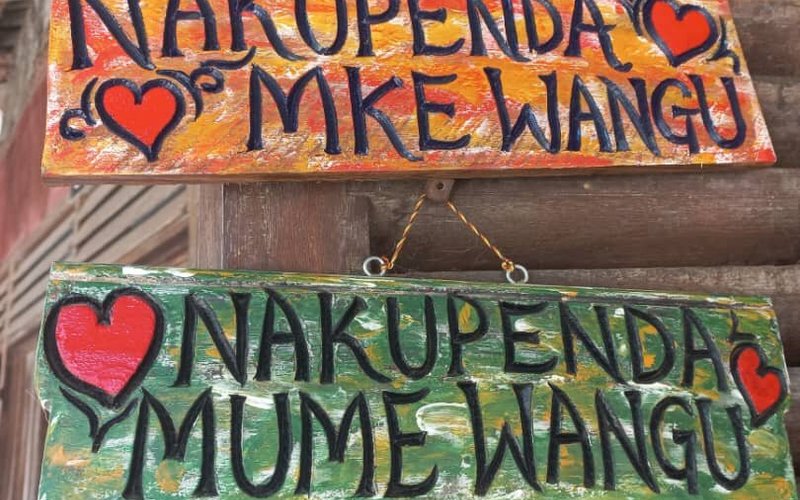 NAKUPENDA
MKE WANGU
NAKUPENDA
MUME WANGU